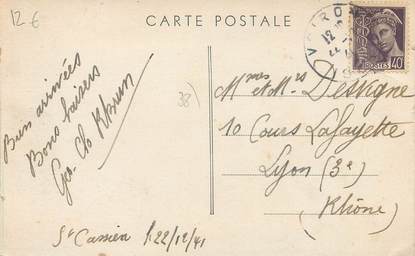 12 €
CARTE POSTALE
VOIRON
POSTES 40
38)
Bien arrivées
Bons baisers
Mmes et Mrs Desvigne
10 Cours Lafayette
Lyon (3e)
(Rhône)
St Cassien le 22/12/41